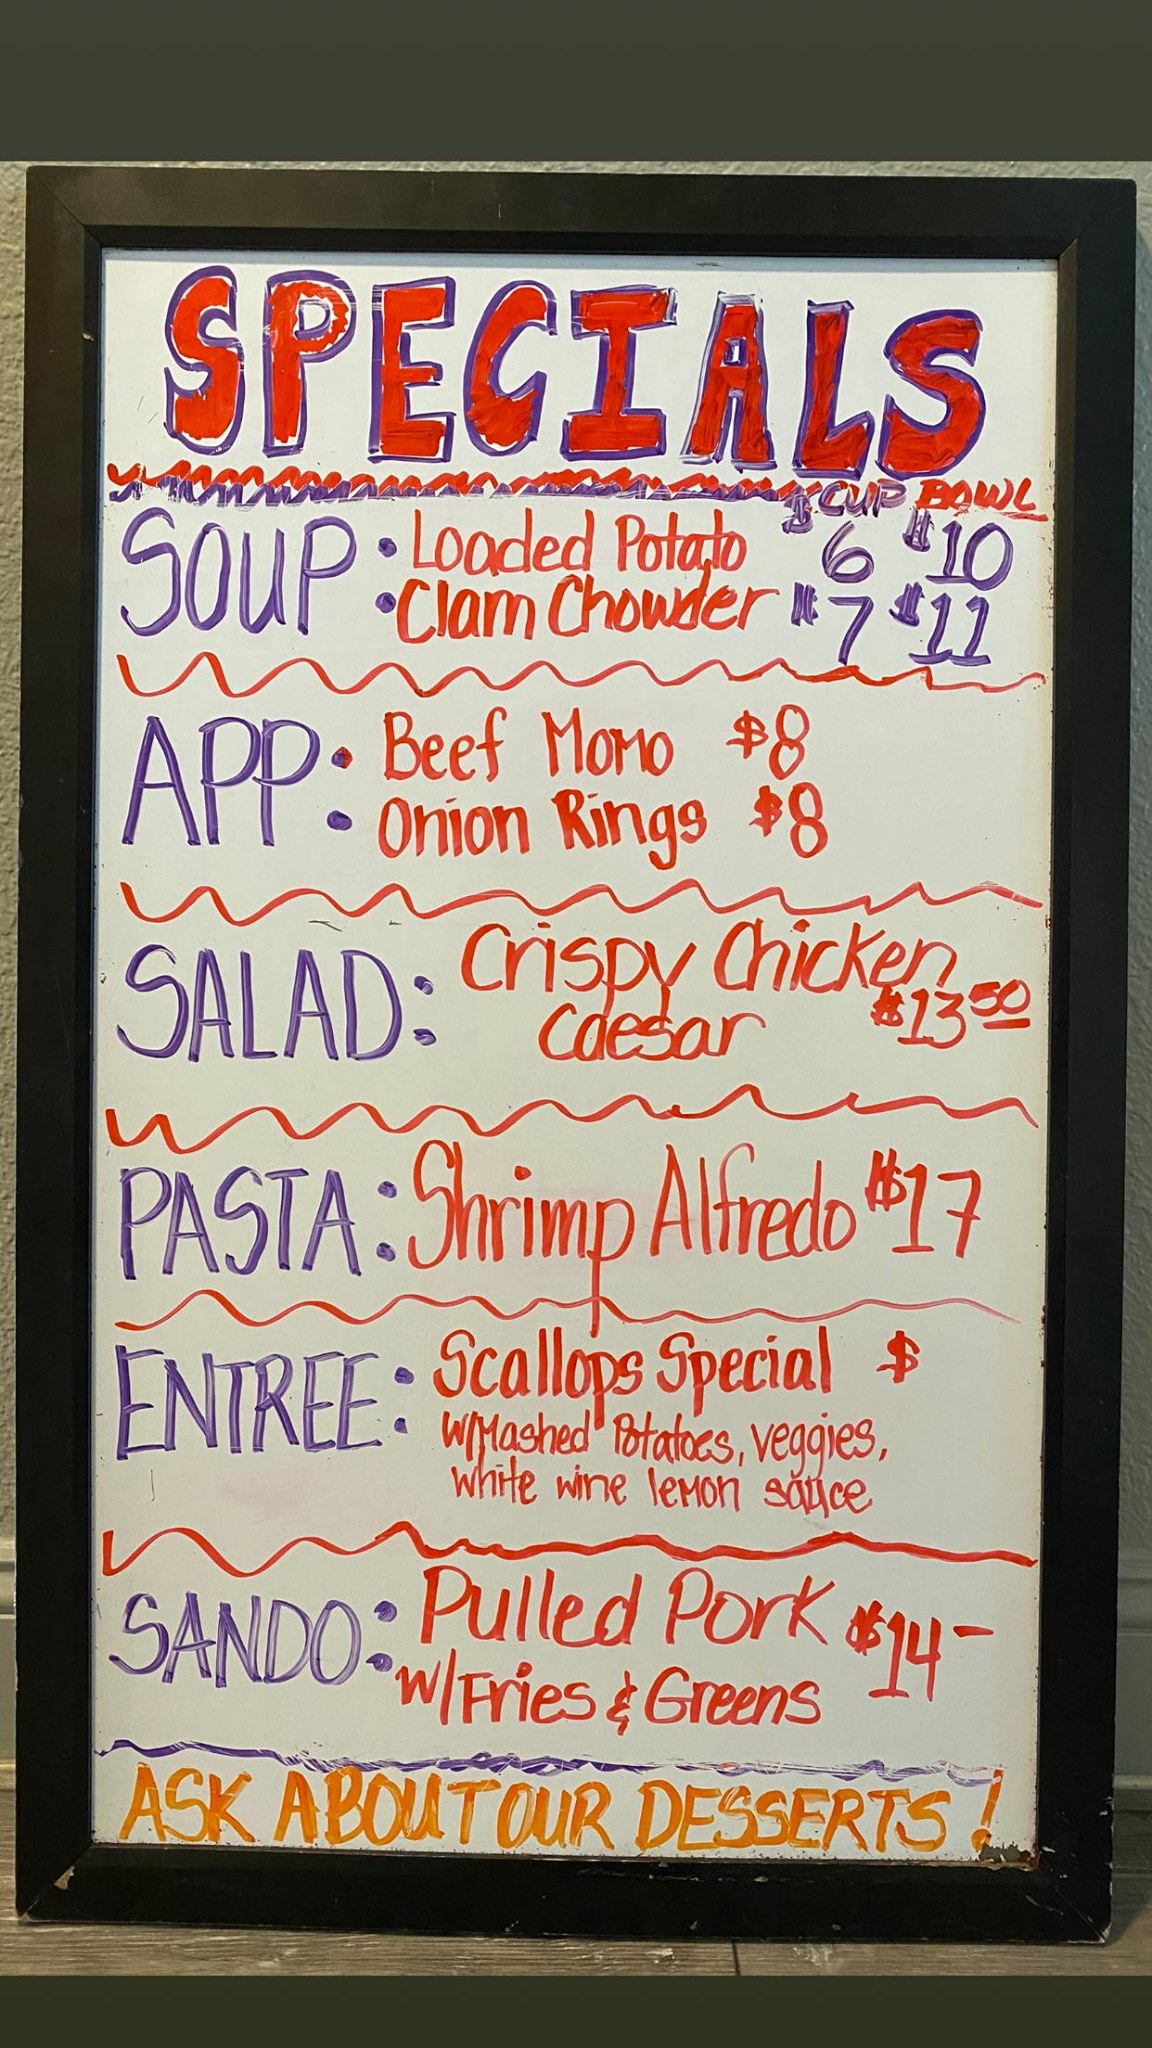 SPECIALS
CUP BOWL
SOUP: Loaded Potato $6 $10
Clam Chowder $7 $11
APP: Beef Momo $8
Onion Rings $8
SALAD: Crispy Chicken
Caesar $13 50
PASTA: Shrimp Alfredo $17
ENTREE: Scallops Special $
w/Mashed Potatoes, veggies,
white wine lemon sauce
SANDO: Pulled Pork $14-
w/Fries & Greens
ASK ABOUT OUR DESSERTS!